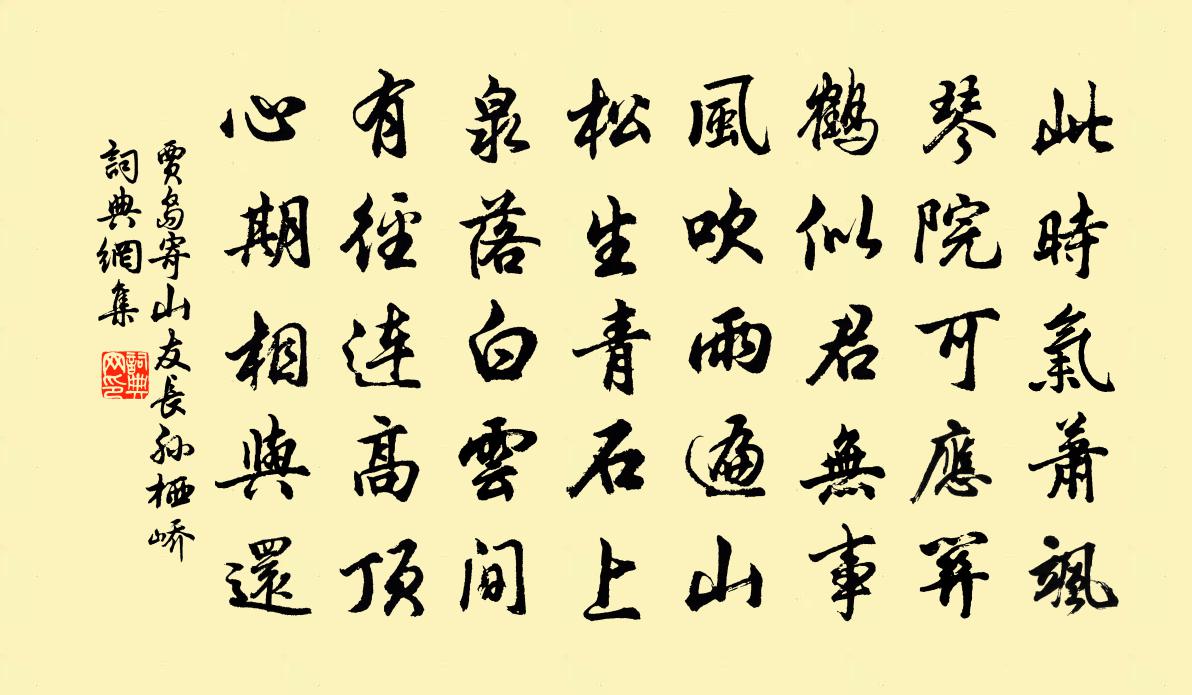 此時氣蕭颯
琴院可應關
鶴似君無事
風吹雨遍山
松生青石上
泉落白雲間
有徑連高頂
心期相與還
賈島寄山友長孫栖嶠
詞典網集
詞典网印